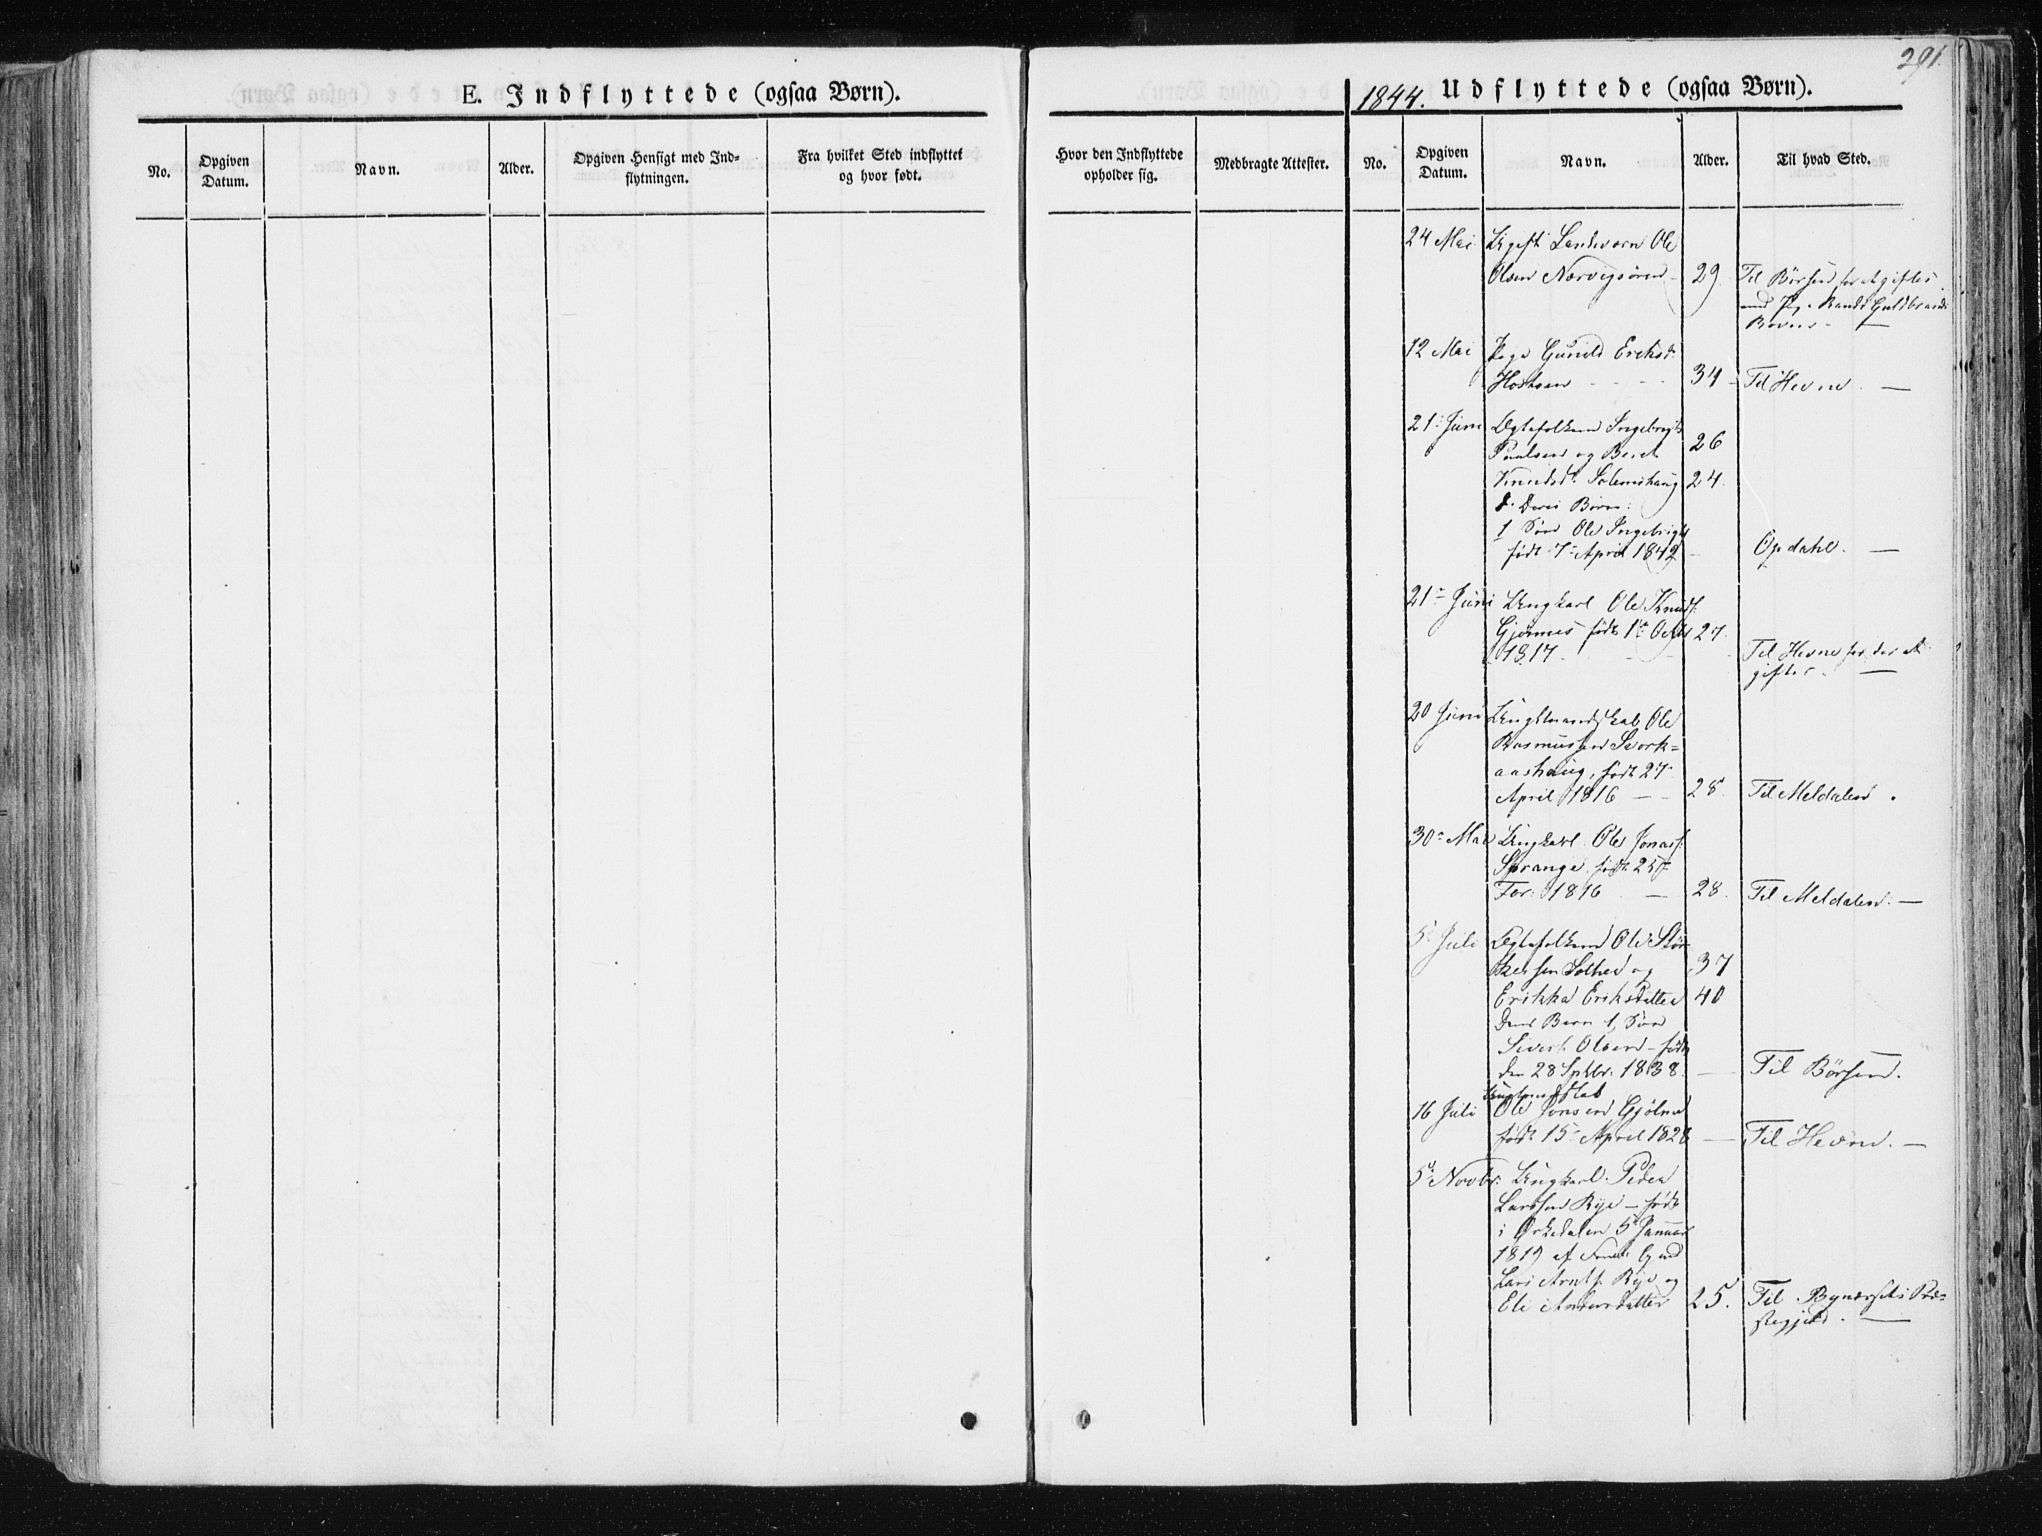 291.
E. Indflyttede (ogsaa Børn).
1844. Udflyttede (ogsaa Børn).
No.
Opgiven
Datum.
Navn.
Alder.
Opgiven Hensigt med Ind-
flytningen.
Fra hvilket Sted indflyttet
og hvor født.
Hvor den Indflyttede
opholder sig.
Medbragte Attester.
No.
Opgiven
Datum.
Navn.
Alder.
Til hvad Sted.
24 Mai Landværn Ole
Olsen Nærvigsøren 29. Til Børsen for at giftes
med Pige Guldbrands
12 Mai Pige Gunild Eriksd.
34 Til Hevne. —
21 Juni Ægtefolkene Ingebrigt
Paulsen og Beret 26
Knudsd. Solemshaug 24.
Deres Børn:
1 Søn Ole Ingebrigts
født 7- April 1842 — Opdahl. —
21- Juni Ungkarl Ole Knuds.
Gjønnes født 1- Octbr 27.
1817 - Til Hevne for der at
giftes. —
20 Juni Ole
Rasmussen Svork-
aashaug, født 27-
April 1816 — 28. Til Meldalen.
30- Mai Ungkarl Ole Jonas.
Sprange født 25-
Fer: 1816 — 28. Til Meldalen. —
5- Juli Ægtefolkene Ole Stør-
kersen Solhei og 37
Erikka Eriksdatter 40
Deres Børn 1, Søn
Sivert Olsen - født
den 28 Sptbr. 1838. — Til Børsen.
16 Juli Ole Jonsen Gjølme
født 15- April 1828 — Til Hevne. —
5- Novbr: Ungkarl Peder
Larssen Rye - født
i Ørkedalen 5- Januar
1819 af
Lars Arnts. Rye og
Eli Andersdatter 25. Til Bynæssets Præ-
stegjeld. —